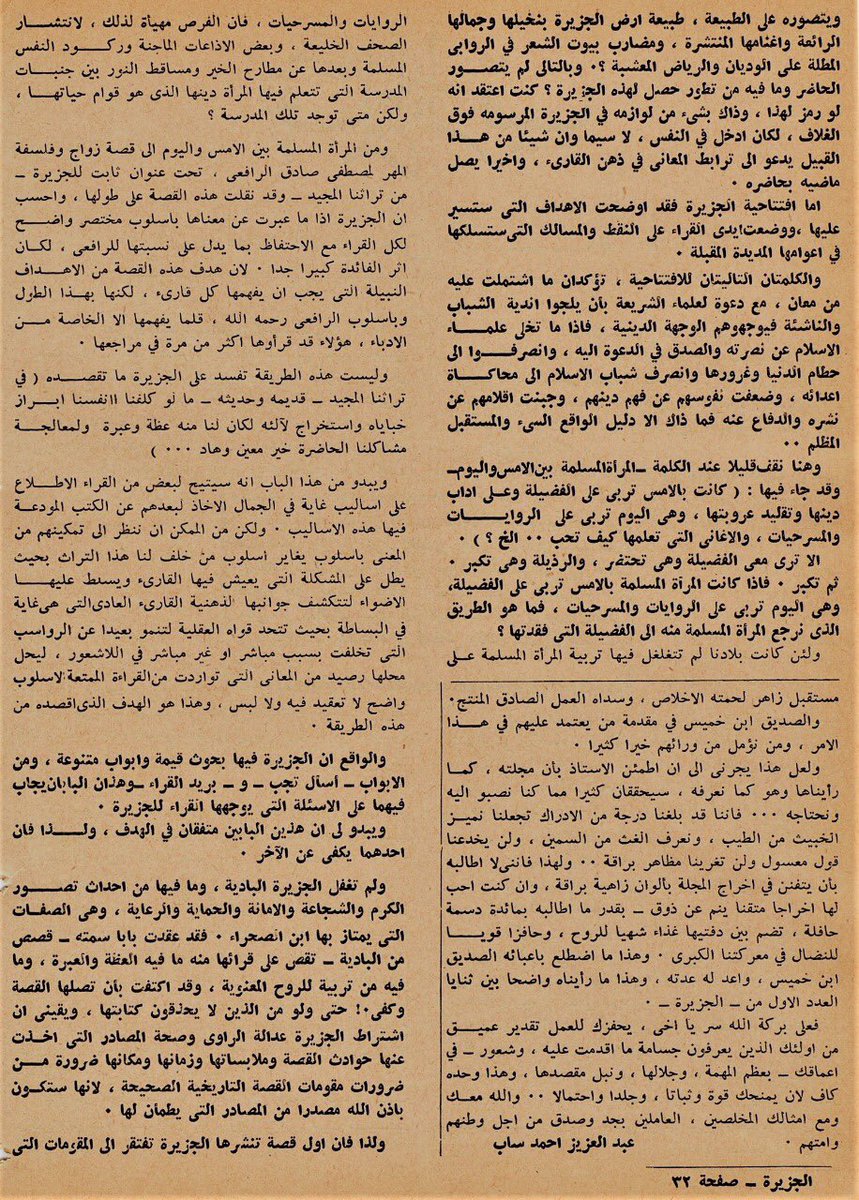 ويتصوره على الطبيعة ، طبيعة ارض الجزيرة بنخيلها وجمالها
الرائعة واغنامها المنتشرة ، ومضارب بيوت الشعر في الروابى
المطلة على الوديان والرياض المعشبة ؟٠ وبالتالى لم يتصور
الحاضر وما فيه من تطور حصل لهذه الجزيرة ؟ كنت اعتقد انه
لو رمز لهذا ، وذاك بشىء من لوازمه في الجزيرة المرسومه فوق
الغلاف ، لكان ادخل في النفس ، لا سيما وان شيئا من هذا
القبيل يدعو الى ترابط المعانى في ذهن القارىء ، واخيرا يصل
ماضيه بحاضره ٠
اما افتتاحية الجزيرة فقد اوضحت الاهداف التى ستسير
عليها ،ووضعت ايدى القراء على النقط والمسالك التى ستسلكها
في اعوامها المديدة المقبلة ٠
والكلمتان التاليتان للافتتاحية ، تؤكدان ما اشتملت عليه
من معان ، مع دعوة لعلماء الشريعة بأن يلجوا اندية الشباب
والناشئة فيوجهوهم الوجهة الدينية ، فاذا ما تخلى علماء
الاسلام عن نصرته والصدق في الدعوة اليه ، وانصرفوا الى
حطام الدنيا وغرورها وانصرف شباب الاسلام الى محاكاة
اعدائه ، وضعفت نفوسهم عن فهم دينهم ، وجبنت اقلامهم عن
نشره والدفاع عنه فما ذاك الا دليل الواقع السىء والمستقبل
المظلم ٠٠
وهنا نقف قليلا عند الكلمة ـ المرأة المسلمة بين الامس واليوم ـ
وقد جاء فيها : ( كانت بالامس تربى على الفضيلة وعلى اداب
دينها وتقليد عروبتها ، وهى اليوم تربى على الروايات
والمسرحيات ، والاغانى التى تعلمها كيف تحب ٠٠ الخ ؟ ) ٠
الا ترى معى الفضيلة وهى تحتضر ، والرذيلة وهى تكبر ٠
ثم تكبر ٠ فاذا كانت المرأة المسلمة بالامس تربى على الفضيلة،
وهى اليوم تربى على الروايات والمسرحيات ، فما هو الطريق
الذى نرجع المرأة المسلمة منه الى الفضيلة التى فقدتها ؟
ولئن كانت بلادنا لم تتغلغل فيها تربية المرأة المسلمة على
الروايات والمسرحيات ، فان الفرص مهيأة لذلك ، لانتشار
الصحف الخليعة ، وبعض الاذاعات الماجنة وركود النفس
المسلمة وبعدها عن مطارح الخير ومساقط النور بين جنبات
المدرسة التى تتعلم فيها المرأة دينها الذى هو قوام حياتها ،
ولكن متى توجد تلك المدرسة ؟
ومن المرأة المسلمة بين الامس واليوم الى قصة زواج وفلسفة
المهر لمصطفى صادق الرافعى ، تحت عنوان ثابت للجزيرة ـ
من تراثنا المجيد ـ وقد نقلت هذه القصة على طولها ، واحسب
ان الجزيرة اذا ما عبرت عن معناها باسلوب مختصر واضح
لكل القراء مع الاحتفاظ بما يدل على نسبتها للرافعى ، لكان
اثر الفائدة كبيرا جدا ٠ لان هدف هذه القصة من الاهداف
النبيلة التى يجب ان يفهمها كل قارىء ، لكنها بهذا الطول
وباسلوب الرافعى رحمه الله ، قلما يفهمها الا الخاصة من
الادباء ، هؤلاء قد قرأوها اكثر من مرة في مراجعها ٠
وليست هذه الطريقة تفسد على الجزيرة ما تقصده ( في
تراثنا المجيد ـ قديمه وحديثه ـ ما لو كلفنا اانفسنا ابراز
خباياه واستخراج لآلئه لكان لنا منه عظة وعبرة ولمعالجة
مشاكلنا الحاضرة خير معين وهاد ٠٠٠ )
ويبدو من هذا الباب انه سيتيح لبعض من القراء الاطلاع
على اساليب غاية في الجمال الاخاذ لبعدهم عن الكتب المودعة
فيها هذه الاساليب ٠ ولكن من الممكن ان ننظر الى تمكينهم من
المعنى باسلوب يغاير اسلوب من خلف لنا هذا التراث بحيث
يطل على المشكلة التى يعيش فيها القارىء ويسلط عليها
الاضواء لتتكشف جوانبها لذهنية القارىء العادى التى هى غاية
في البساطة بحيث تتحد قواه العقلية لتنمو بعيدا عن الرواسب
التى تخلفت بسبب مباشر او غير مباشر في اللاشعور ، ليحل
محلها رصيد من المعانى التى تواردت من القراءة الممتعة لاسلوب
واضح لا تعقيد فيه ولا لبس ، وهذا هو الهدف الذى اقصده من
هذه الطريقة ٠
والواقع ان الجزيرة فيها بحوث قيمة وابواب متنوعة ، ومن
الابواب ـ أسأل تجب ـ و ـ بريد القراء ـ وهذان البابان يجاب
فيهما على الاسئلة التى يوجهها القراء للجزيرة ٠
ويبدو لى ان هذين البابين متفقان في الهدف ، ولذا فان
احدهما يكفى عن الآخر ٠
ولم تغفل الجزيرة البادية ، وما فيها من احداث تصور
الكرم والشجاعة والامانة والحماية والرعاية ، وهى الصفات
التى يمتاز بها ابن الصحراء ٠ فقد عقدت بابا سمته ـ قصص
من البادية ـ تقص على قرائها منه ما فيه العظة والعبرة ، وما
فيه من تربية للروح المعنوية ، وقد اكتفت بأن تصلها القصة
وكفى٠! حتى ولو من الذين لا يحذقون كتابتها ، ويقينى ان
اشتراط الجزيرة عدالة الراوى وصحة المصادر التى اخذت
عنها حوادث القصة وملابساتها وزمانها ومكانها ضرورة من
ضرورات مقومات القصة التاريخية الصحيحة ، لانها ستكون
باذن الله مصدرا من المصادر التى يطمأن لها ٠
ولذا فان اول قصة تنشرها الجزيرة تفتقر الى المقومات التى
مستقبل زاهر لحمته الاخلاص ، وسداه العمل الصادق المنتج٠
والصديق ابن خميس في مقدمة من يعتمد عليهم في هذا
الامر ، ومن نؤمل من ورائهم خيرا كثيرا ٠
ولعل هذا يجرنى الى ان اطمئن الاستاذ بأن مجلته ، كما
رأيناها وهو كما نعرفه ، سيحققان كثيرا مما كنا نصبو اليه
ونحتاجه ٠٠٠ فاننا قد بلغنا درجة من الادراك تجعلنا نميز
الخبيث من الطيب ، ونعرف الغث من السمين ، ولن يخدعنا
قول معسول ولن تغرينا مظاهر براقة ٠٠ ولهذا فاننى لا اطالبه
بأن يتفنن في اخراج المجلة بالوان زاهية براقة ، وان كنت احب
لها اخراجا متقنا ينم عن ذوق ـ بقدر ما اطالبه بمائدة دسمة
حافلة ، تضم بين دفتيها غذاء شهيا للروح ، وحافزا قويا
للنضال في معركتنا الكبرى ٠ وهذا ما اضطلع باعبائه الصديق
ابن خميس ، واعد له عدته ، وهذا ما رأيناه واضحا بين ثنايا
العدد الاول من ـ الجزيرة ـ ٠
فعلى بركة الله سر يا اخى ، يحفزك للعمل تقدير عميق
من اولئك الذين يعرفون جسامة ما اقدمت عليه ، وشعور ـ في
اعماقك ـ بعظم المهمة ، وجلالها ، ونبل مقصدها ، وهذا وحده
كاف لان يمنحك قوة وثباتا ، وجلدا واحتمالا ٠٠ والله معك
ومع امثالك المخلصين ، العاملين بجد وصدق من اجل وطنهم
وامتهم ٠
عبد العزيز احمد ساب
الجزيرة ـ صفحة ٣٢